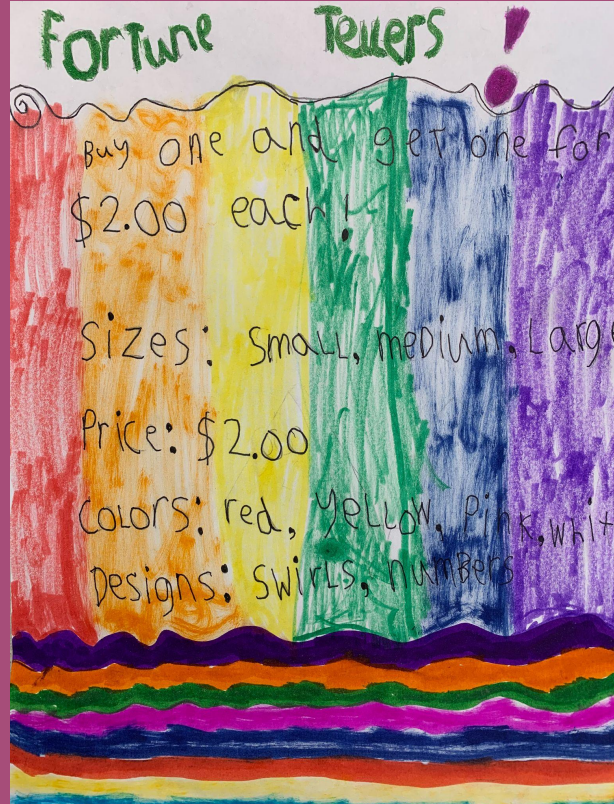 Fortune Tellers!
Buy one and get one for
$2.00 each!
Sizes: Small, medium, Large
Price: $2.00
Colors: red, yellow, pink, whit
Designs: swirls, numbers